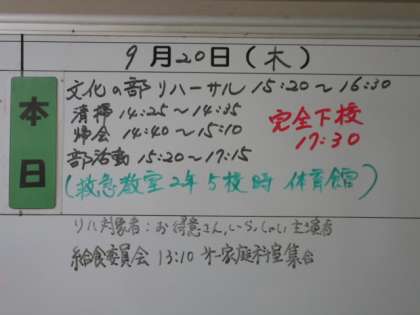 9月20日(木)
本日
文化の部リハーサル 15:20〜16:30
清掃 14:25〜14:35
帰会 14:40〜15:10
完全下校
17:30
部活動 15:20〜17:15
(救急教室2年5校時 体育館)
リハ対象者:お得意さん,いらっしゃい主演者
給食委員会 13:10 家庭科室集合